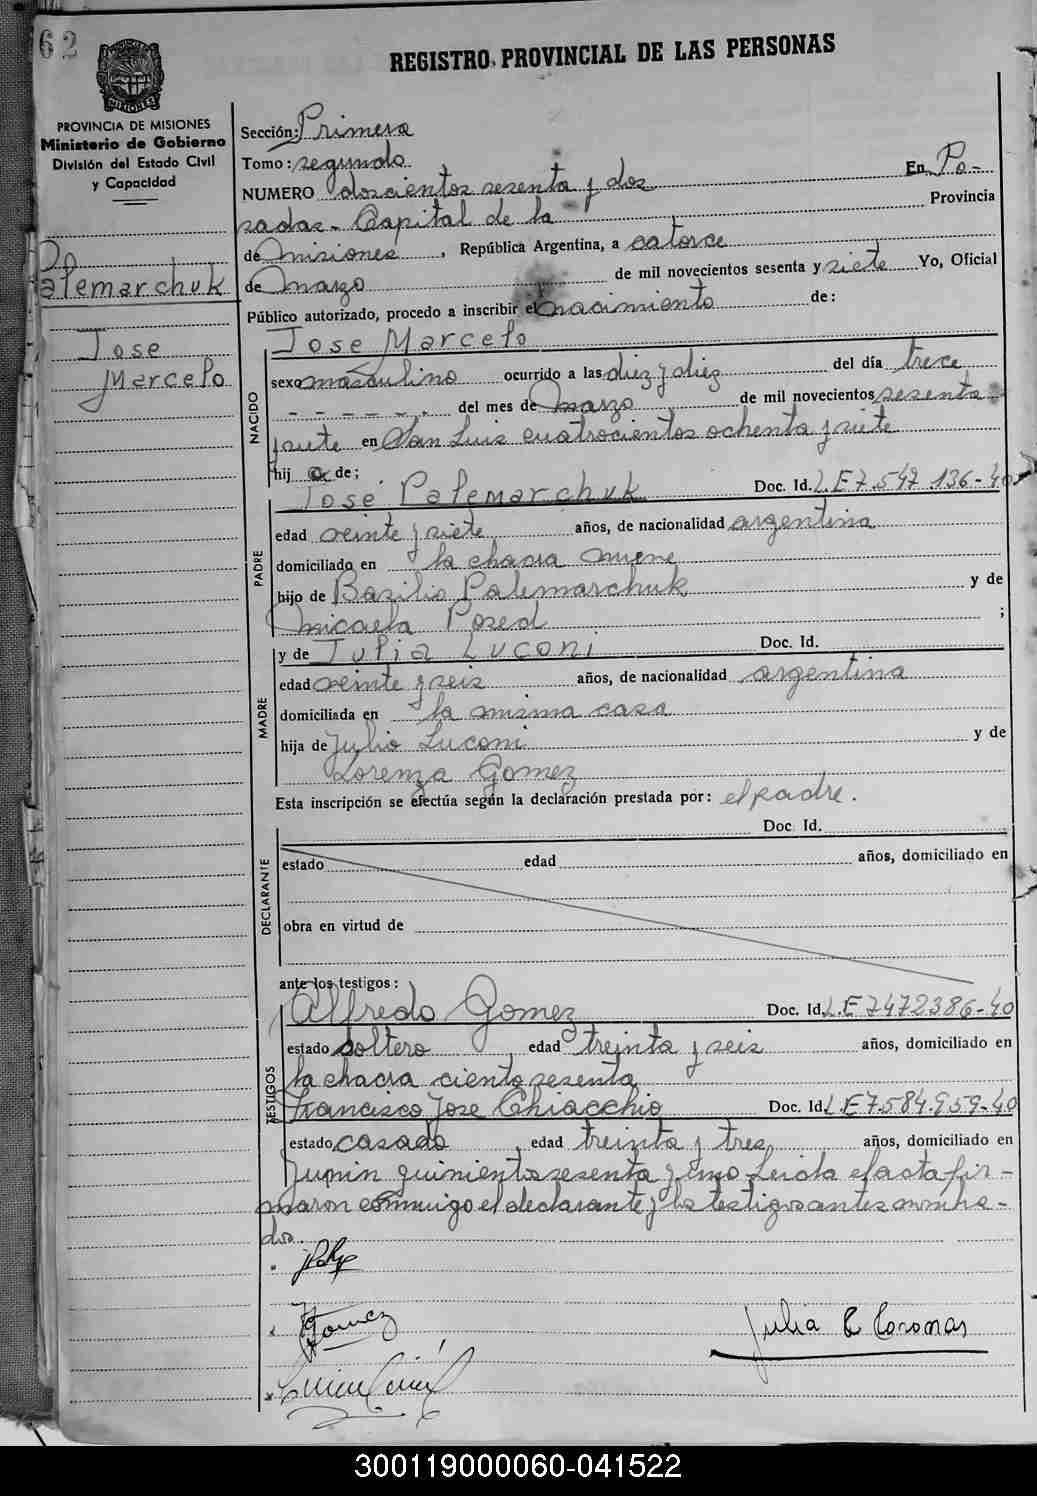 62
REGISTRO PROVINCIAL DE LAS PERSONAS
PROVINCIA DE MISIONES
Ministerio de Gobierno
División del Estado Civil
y Capacidad
Palemarchuk
Jose
Marcelo
Sección: Primera
Tomo: segundo
NUMERO doscientos sesenta y dos En Po-
sadas - Capital de la Provincia
de Misiones, República Argentina, a catorce
de Marzo de mil novecientos sesenta y siete Yo, Oficial
Público autorizado, procedo a inscribir el nacimiento de:
NACIDO
Jose Marcelo
sexo masculino ocurrido a las diez y diez del día trece
- - - - - - del mes de Marzo de mil novecientos sesenta
y siete en San Luis cuatrocientos ochenta y siete
hijo de:
PADRE
Jose Palemarchuk Doc. Id. L.E 7.547.136-40
edad veinte y siete años, de nacionalidad argentina
domiciliado en la chacra nueve
hijo de Basilio Palemarchuk y de
Micaela Pozed ;
MADRE
y de Julia Luconi Doc. Id.
edad veinte y seis años, de nacionalidad argentina
domiciliada en la misma casa
hija de Julio Luconi y de
Lorenza Gomez
Esta inscripción se efectúa según la declaración prestada por: el padre.
DECLARANTE
Doc. Id.
estado edad años, domiciliado en
obra en virtud de
ante los testigos:
TESTIGOS
Alfredo Gomez Doc. Id. L.E 7472386-40
estado soltero edad treinta y seis años, domiciliado en
la chacra ciento sesenta
Francisco Jose Chiacchio Doc. Id. L.E 7.584.959-40
estado casado edad treinta y tres años, domiciliado en
Junin quinientos sesenta y uno - Leida el acta fir-
maron conmigo el declarante y los testigos antes nombra-
dos.
Gomez
Julia E Coronas
300119000060-041522